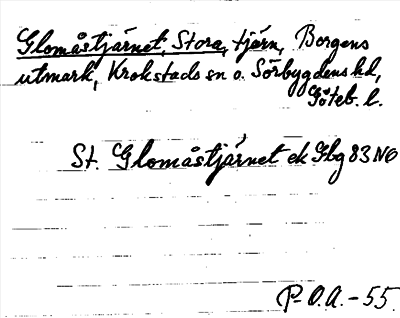 Glomåstjärnet, Stora, tjärn, Borgens
utmark, Krokstads sn o. Sörbygdens hd,
Göteb. l.
St. Glomåstjärnet ek Gbg 83 NO
P-O.A. -55.